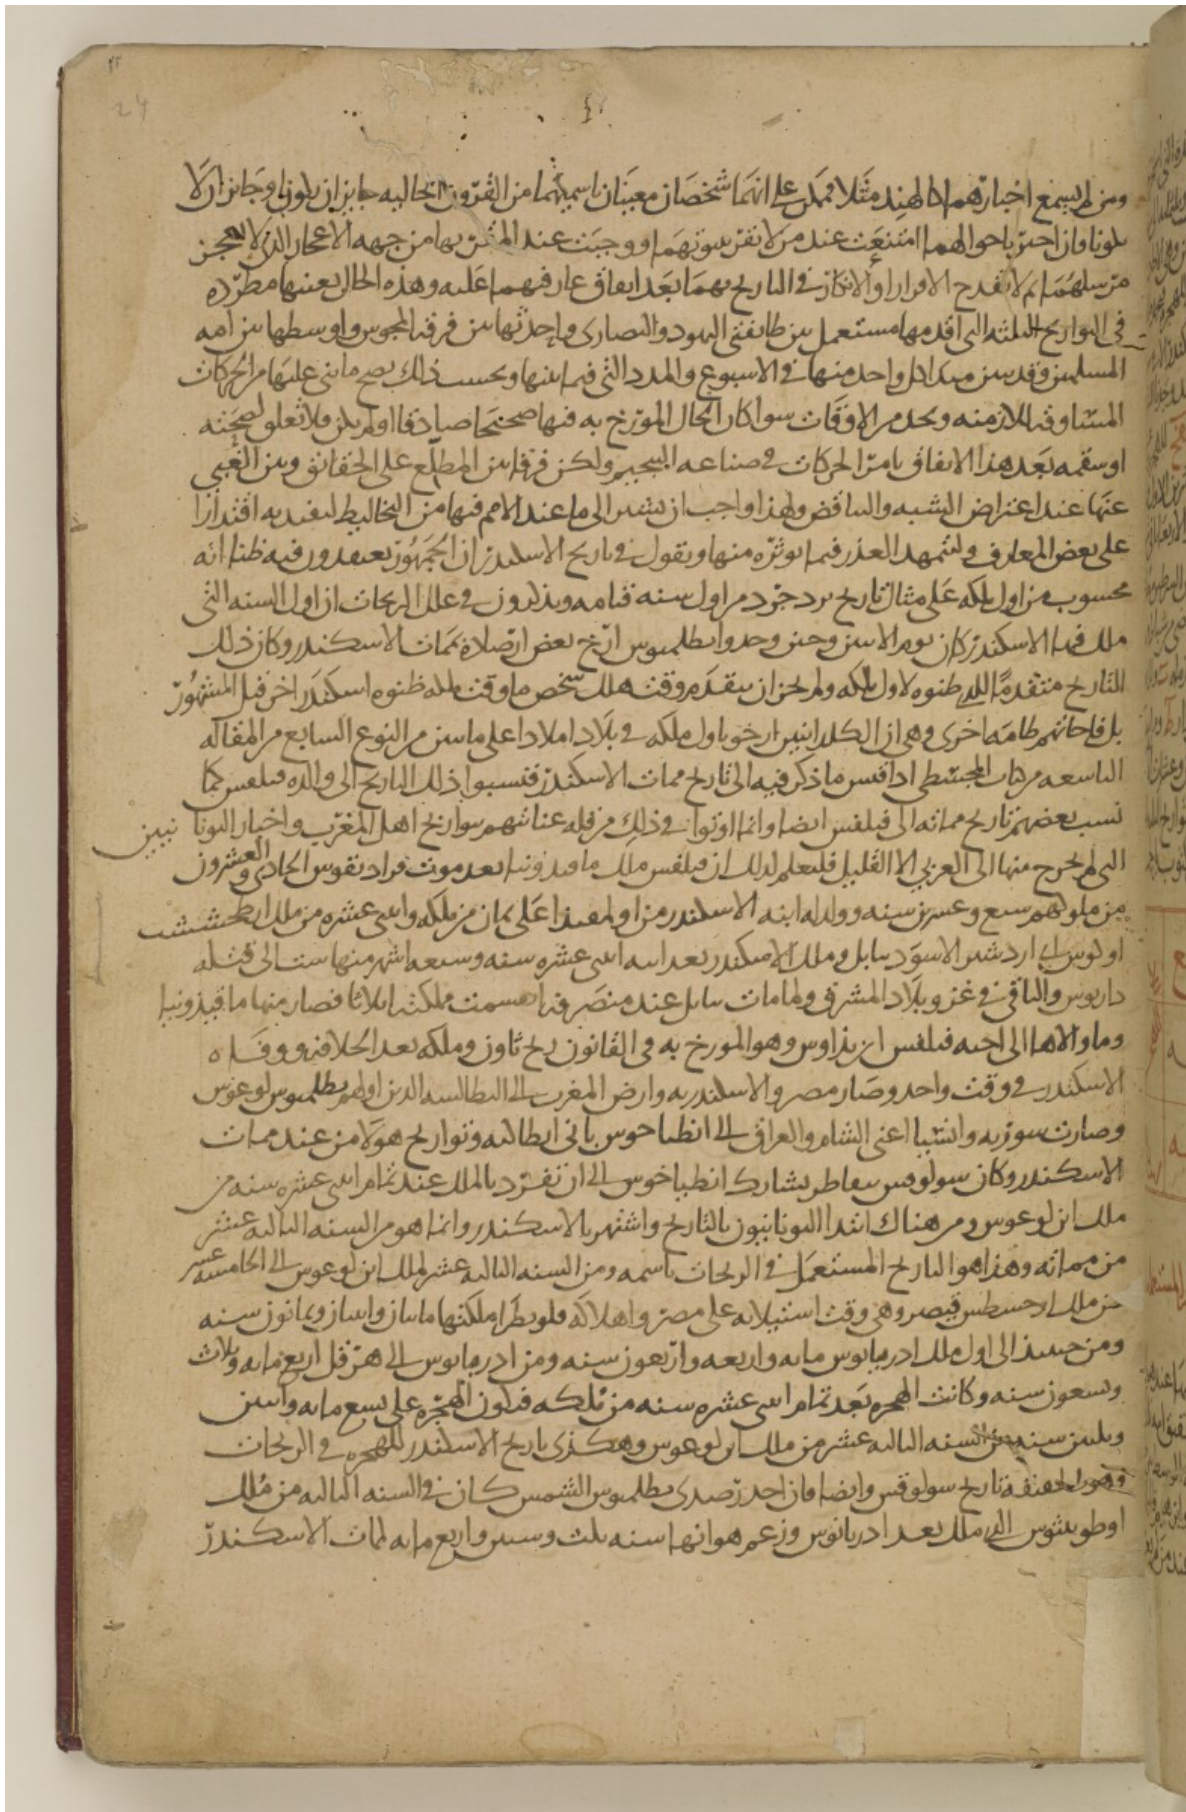 ومن لم يسمع اخبارهم كالهند مثلا فممكن على انهما شخصان معينان باسميهما من القرون الخاليه جايز ان يكونا وجايز ان لا
يكونا فان اخبر باحوالهما امتنعت عند من لا تقر بنبوتهما ووجبت عند المقر بها من جهه الاعجاز الذي لا يعجز
من سلهما ثم لا يقدح الاقرار او الانكار في التاريخ بهما بعد اتفاق عارفيهما عليه وهذه الحال بعينها مطرده
في التواريخ الثلثه التي اقدمها مستعمل بين طايفتي اليهود والنصارى واحدثها بين فرقه المجوس واوسطها بين امه
المسلمين وقد بين مبدا كل واحد منها في الاسبوع والمدد التي فيما بينها وبحسب ذلك يصح ما بني عليها من الحركات
المتساوقه للازمنه وبحد من الاوقات سوا كان الحال المورخ به فيها صحيحا صادقا او لم يكن فلا تعلق لصحته
او سقمه بعد هذا الاتفاق بامر الحركات في صناعه التنجيم ولكن فرقا بين المطلع على الحقائق وبين الغبي
عنها عند اعتراض الشبه والتناقض ولهذا واجب ان نشير الى ما عند الامم فيها من التخاليط لنفيد به اقتدارا
على بعض المعارف ولتمهيد العذر فيما نوثره منها ونقول في تاريخ الاسكندر ان الجمهور يعتقدون فيه ظنا انه
محسوب من اول ملكه على مثال تاريخ يزدجرد من اول سنة قيامه ويذكرون في علل الزيجات ان اول السنه التي
ملك فيها الاسكندر كان يوم الاثنين وحين وجدوا بطلميوس ارخ بعض ارصاده بممات الاسكندر وكان ذلك
التاريخ متقدما للذي ظنوه لاول ملكه ولم يجز ان يتقدم وقت هلك شخص ما وقت ملكه ظنوه اسكندر اخر قبل المشهور
بل فاجاتهم طامه اخرى وهي ان الكلدانيين ارخوا باول ملكه في بلاد املاد اعلى ما بين من النوع السابع من المقاله
التاسعه من كتاب المجسطي اذا قيس ما ذكر فيه الى تاريخ ممات الاسكندر فنسبوا ذلك التاريخ الى والده فيلفس كما
نسب بعضهم تاريخ مماته الى فيلفس ايضا وانما اوتوا في ذلك من قله عنايتهم بتواريخ اهل المغرب واخبار اليونا نيين
التي لم يخرج منها الى العربي الا القليل فليعلم لذلك ان فيلفس ملك ماقيدونيا بعد موت فرادنقوس الحادي والعشرون
من ملوكهم سبع وعشرين سنه وولد له ابنه الاسكندر من اولمفيذا على ثمان من ملكه واثنى عشره من ملك ارطحششت
اوكوس اي اردشير الاسود ببابل وملك الاسكندر بعد ابيه اثنى عشره سنه وسبعه اشهر منها ست الى قتله
داريوس والباقي في غزو بلاد المشرق ولما مات ببابل عند منصرفه انقسمت مملكته اثلاثا فصار منها ماقيذونيا
وما والاها الى اخيه فيلفس ارنذاوس وهو المورخ به في القانون زيج ثاون وملكه بعد الخلافه ووفاه
الاسكندر في وقت واحد وصار مصر والاسكندريه وارض المغرب الى البطالسه الذين اولهم بطلميوس لوغوس
وصارت سوريه واسيا اعني الشام والعراق الى انطياخوس باني انطاكيه وتواريخ هولا من عند ممات
الاسكندر وكان سولوقس نيقاطر يشارك انطياخوس الى ان تفرد بالملك عند تمام اثنى عشره سنه من
ملك ابن لوغوس ومن هناك ابتدا اليونانيون بالتاريخ واشتهر بالاسكندر وانما هو من السنه الثالثه عشر
من مماته وهذا هو التاريخ المستعمل في الزيجات باسمه ومن السنه الثالثه عشر لملك ابن لوغوس الى الخامسه عشر
من ملك اوجسطس قيصر وهي وقت استيلائه على مصر واهلاكه قلوبطرا ملكتها مايتان واثنان وثمانون سنه
ومن حينئذ الى اول ملك ادريانوس مايه واربعه واربعون سنه ومن ادريانوس الى هرقل اربع مايه وثلاث
وتسعون سنه وكانت الهجره بعد تمام اثنى عشره سنه من ملكه فيكون الهجره على تسع مايه واثنين
وثلثين سنه من السنه الثالثه عشر من ملك ابن لوغوس وهكذى تاريخ الاسكندر للهجره في الزيجات
وهو بالحقيقه تاريخ سولوقس وايضا فان احد رصدى بطلميوس الشمس كان في السنه الثالثه من ملك
اوطونينوس الذي ملك بعد ادريانوس وزعم هو انها سنه ثلث وستين واربع مايه لممات الاسكندر